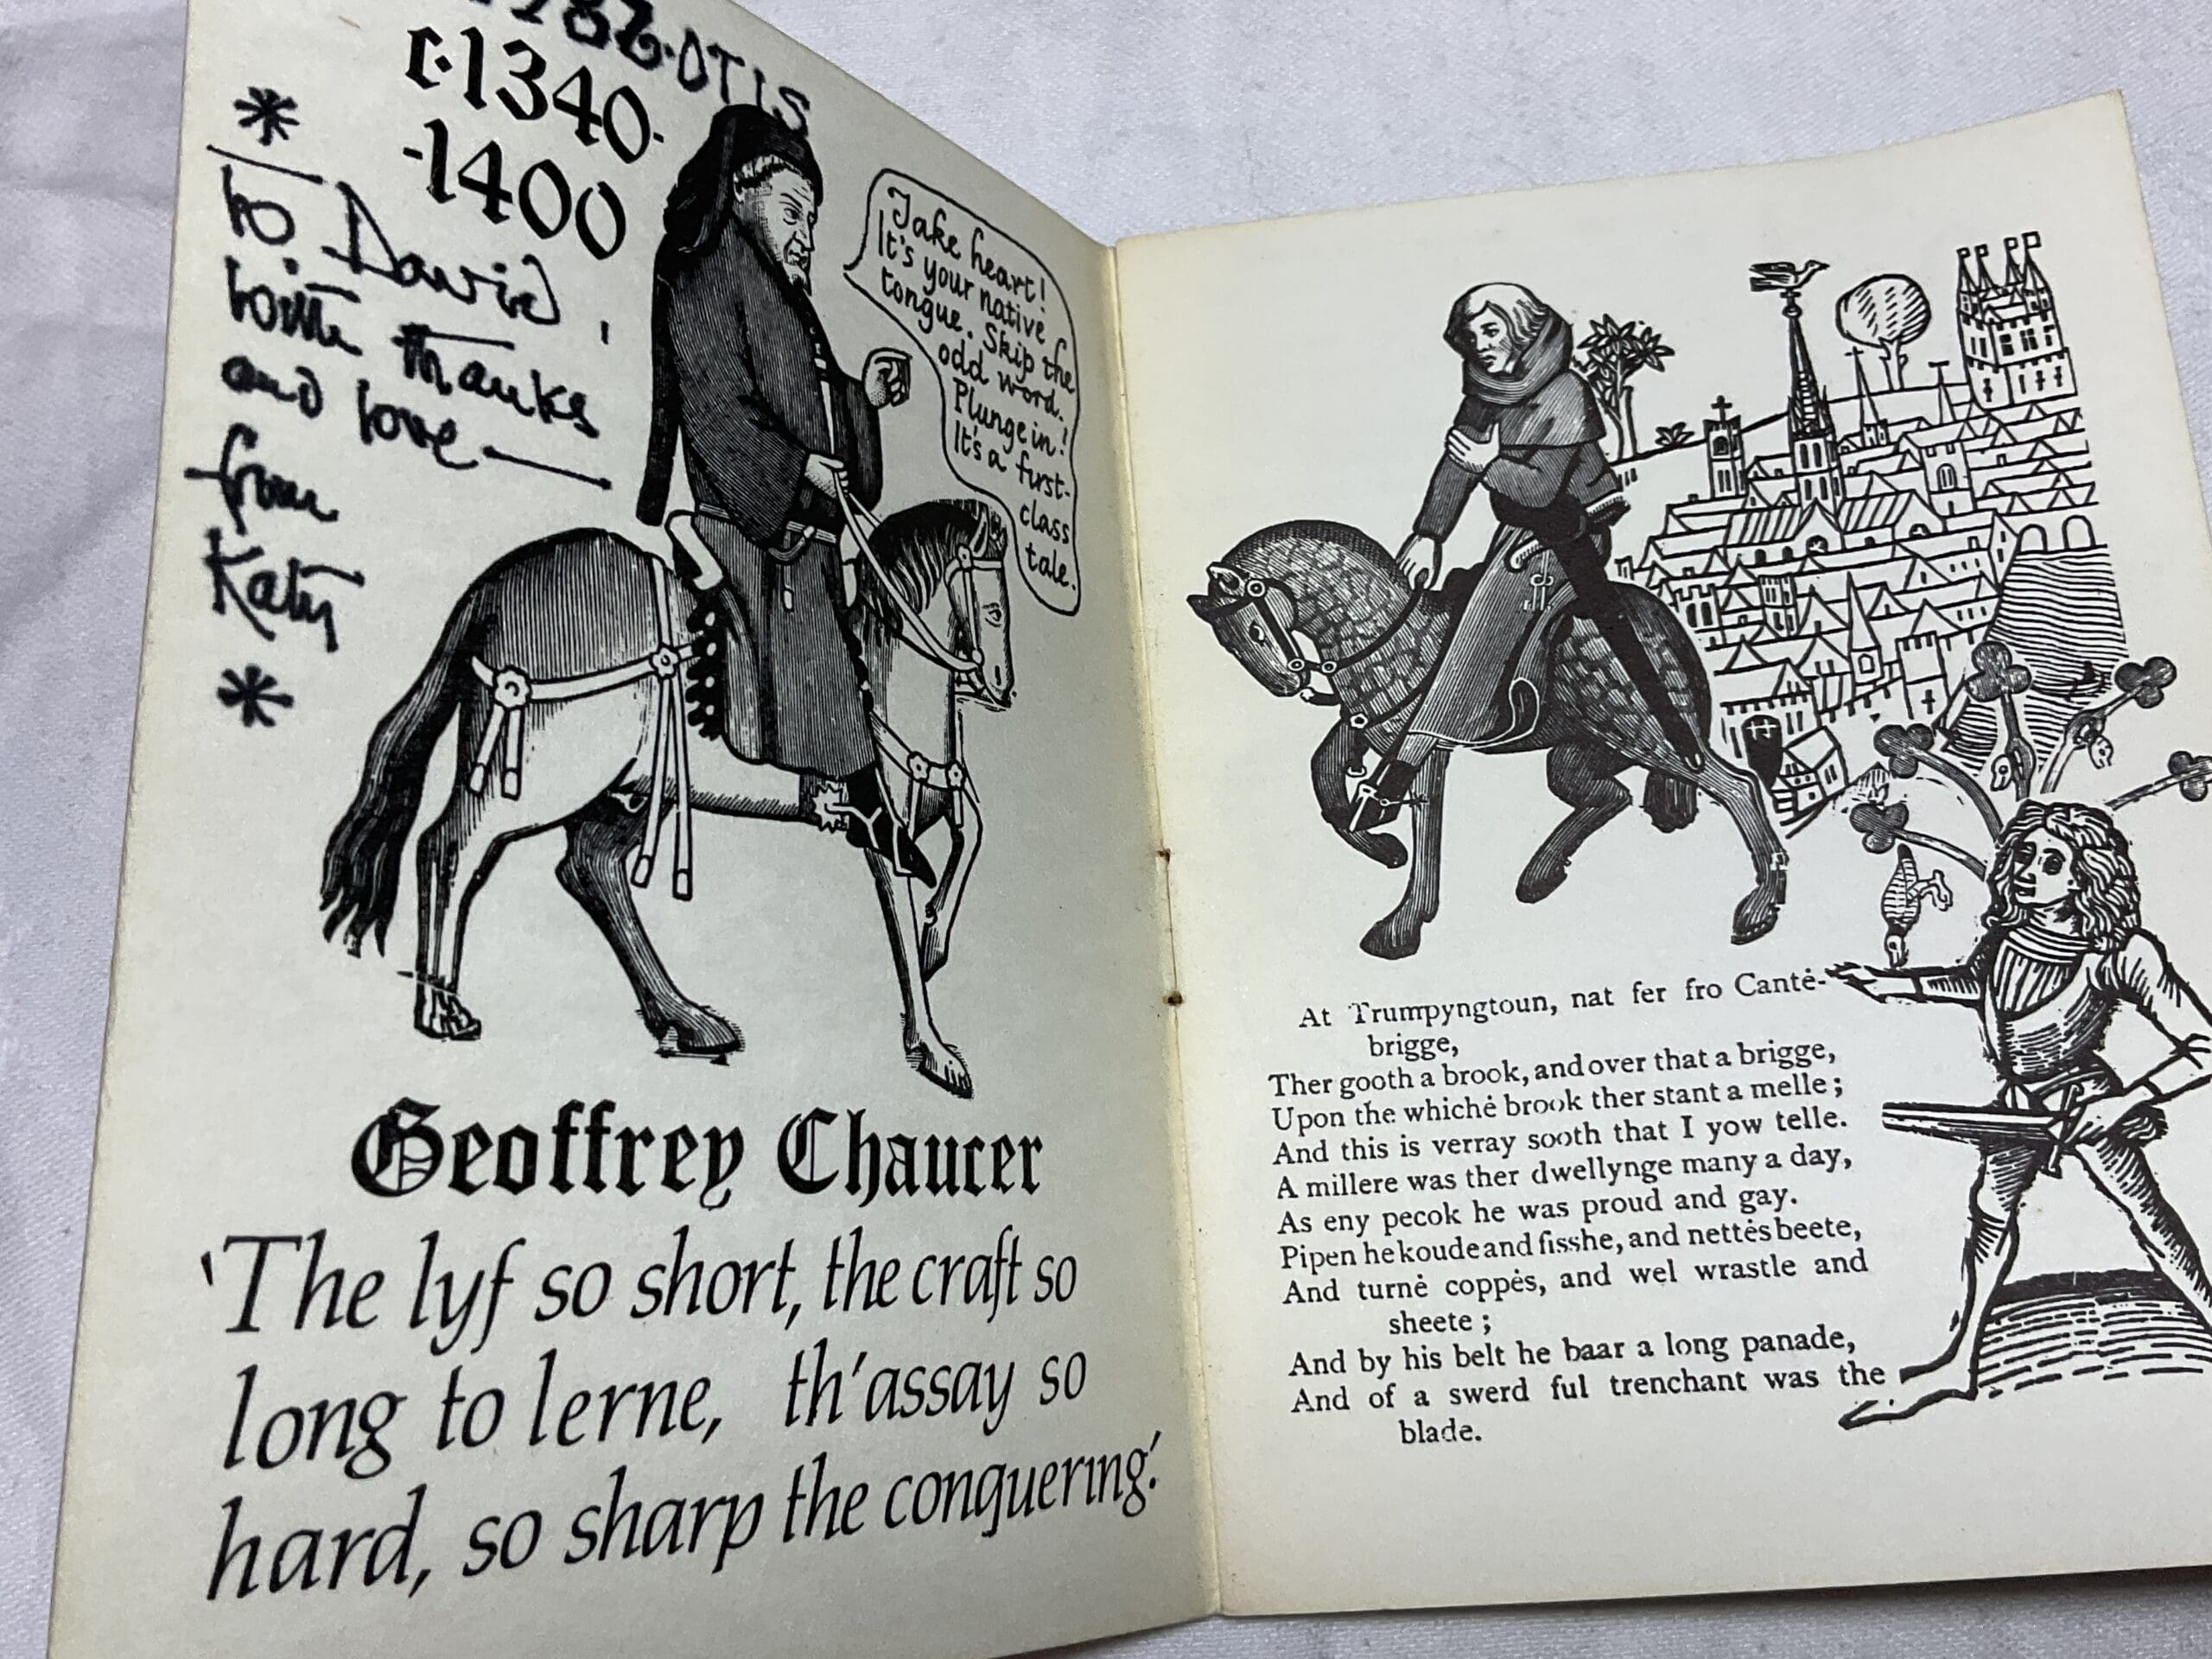 1982·OTIS
c·1340·
·1400
*
to David,
with thanks
and love—
from
Katy
*
Take heart!
It's your native
tongue. Skip the
odd word.
Plunge in!
It's a first-
class
tale.
Geoffrey Chaucer
'The lyf so short, the craft so
long to lerne, th'assay so
hard, so sharp the conquering.'
At Trumpyngtoun, nat fer fro Cantė-
brigge,
Ther gooth a brook, and over that a brigge,
Upon the whichė brook ther stant a melle;
And this is verray sooth that I yow telle.
A millere was ther dwellynge many a day,
As eny pecok he was proud and gay.
Pipen he koude and fisshe, and nettės beete,
And turnė coppės, and wel wrastle and
sheete;
And by his belt he baar a long panade,
And of a swerd ful trenchant was the
blade.